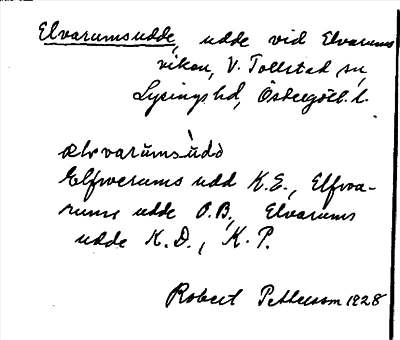 Elvarumsudde, udde vid Elvarums
viken, V. Tollstad sn,
Lysings hd, Östergötl. l.
ælvvarumsudd
Elfwerums udd K.E., Elfwa-
rums udde O.B., Elvarums
udde K.D., K.P.
Robert Pettersson 1928